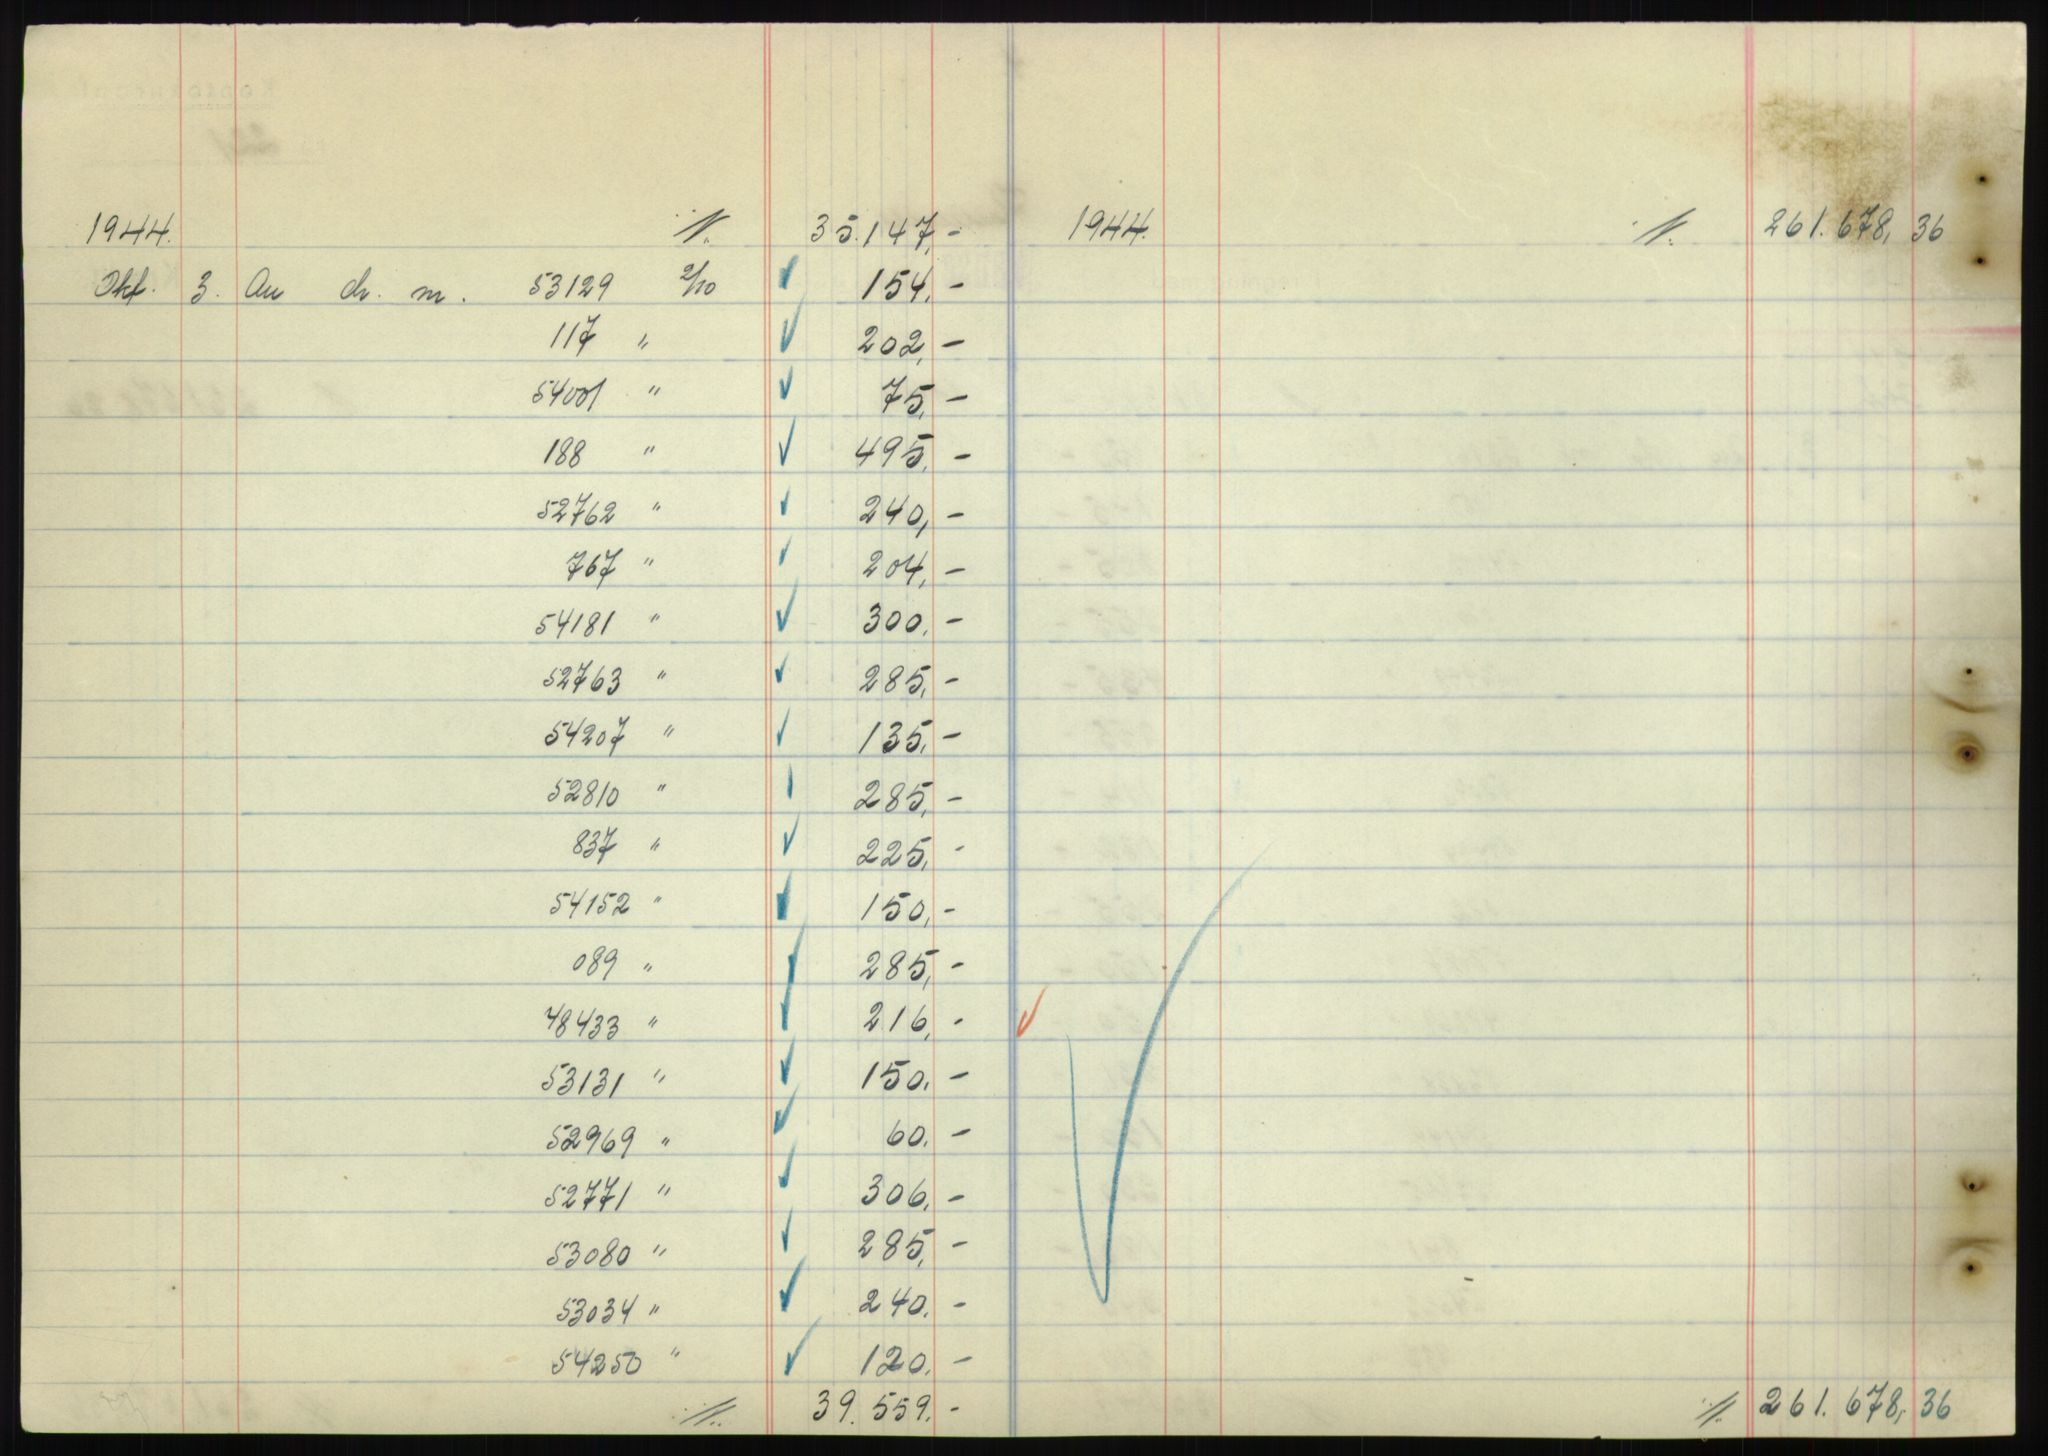 1944. ·/· 35.147,- 1944. ·/· 261.678,36
Okt. 3. An dr. m. 53129 2/10 154,-
117 " 202,-
54001 " 75,-
188 " 495,-
52762 " 240,-
767 " 204,-
54181 " 300,-
52763 " 285,-
54207 " 135,-
52810 " 285,-
837 " 225,-
54152 " 150,-
089 " 285,-
48433 " 216,-
53131 " 150,-
52969 " 60,-
52771 " 306,-
53080 " 285,-
53034 " 240,-
54250 " 120,-
·/· 39.559,- ·/· 261.678,36